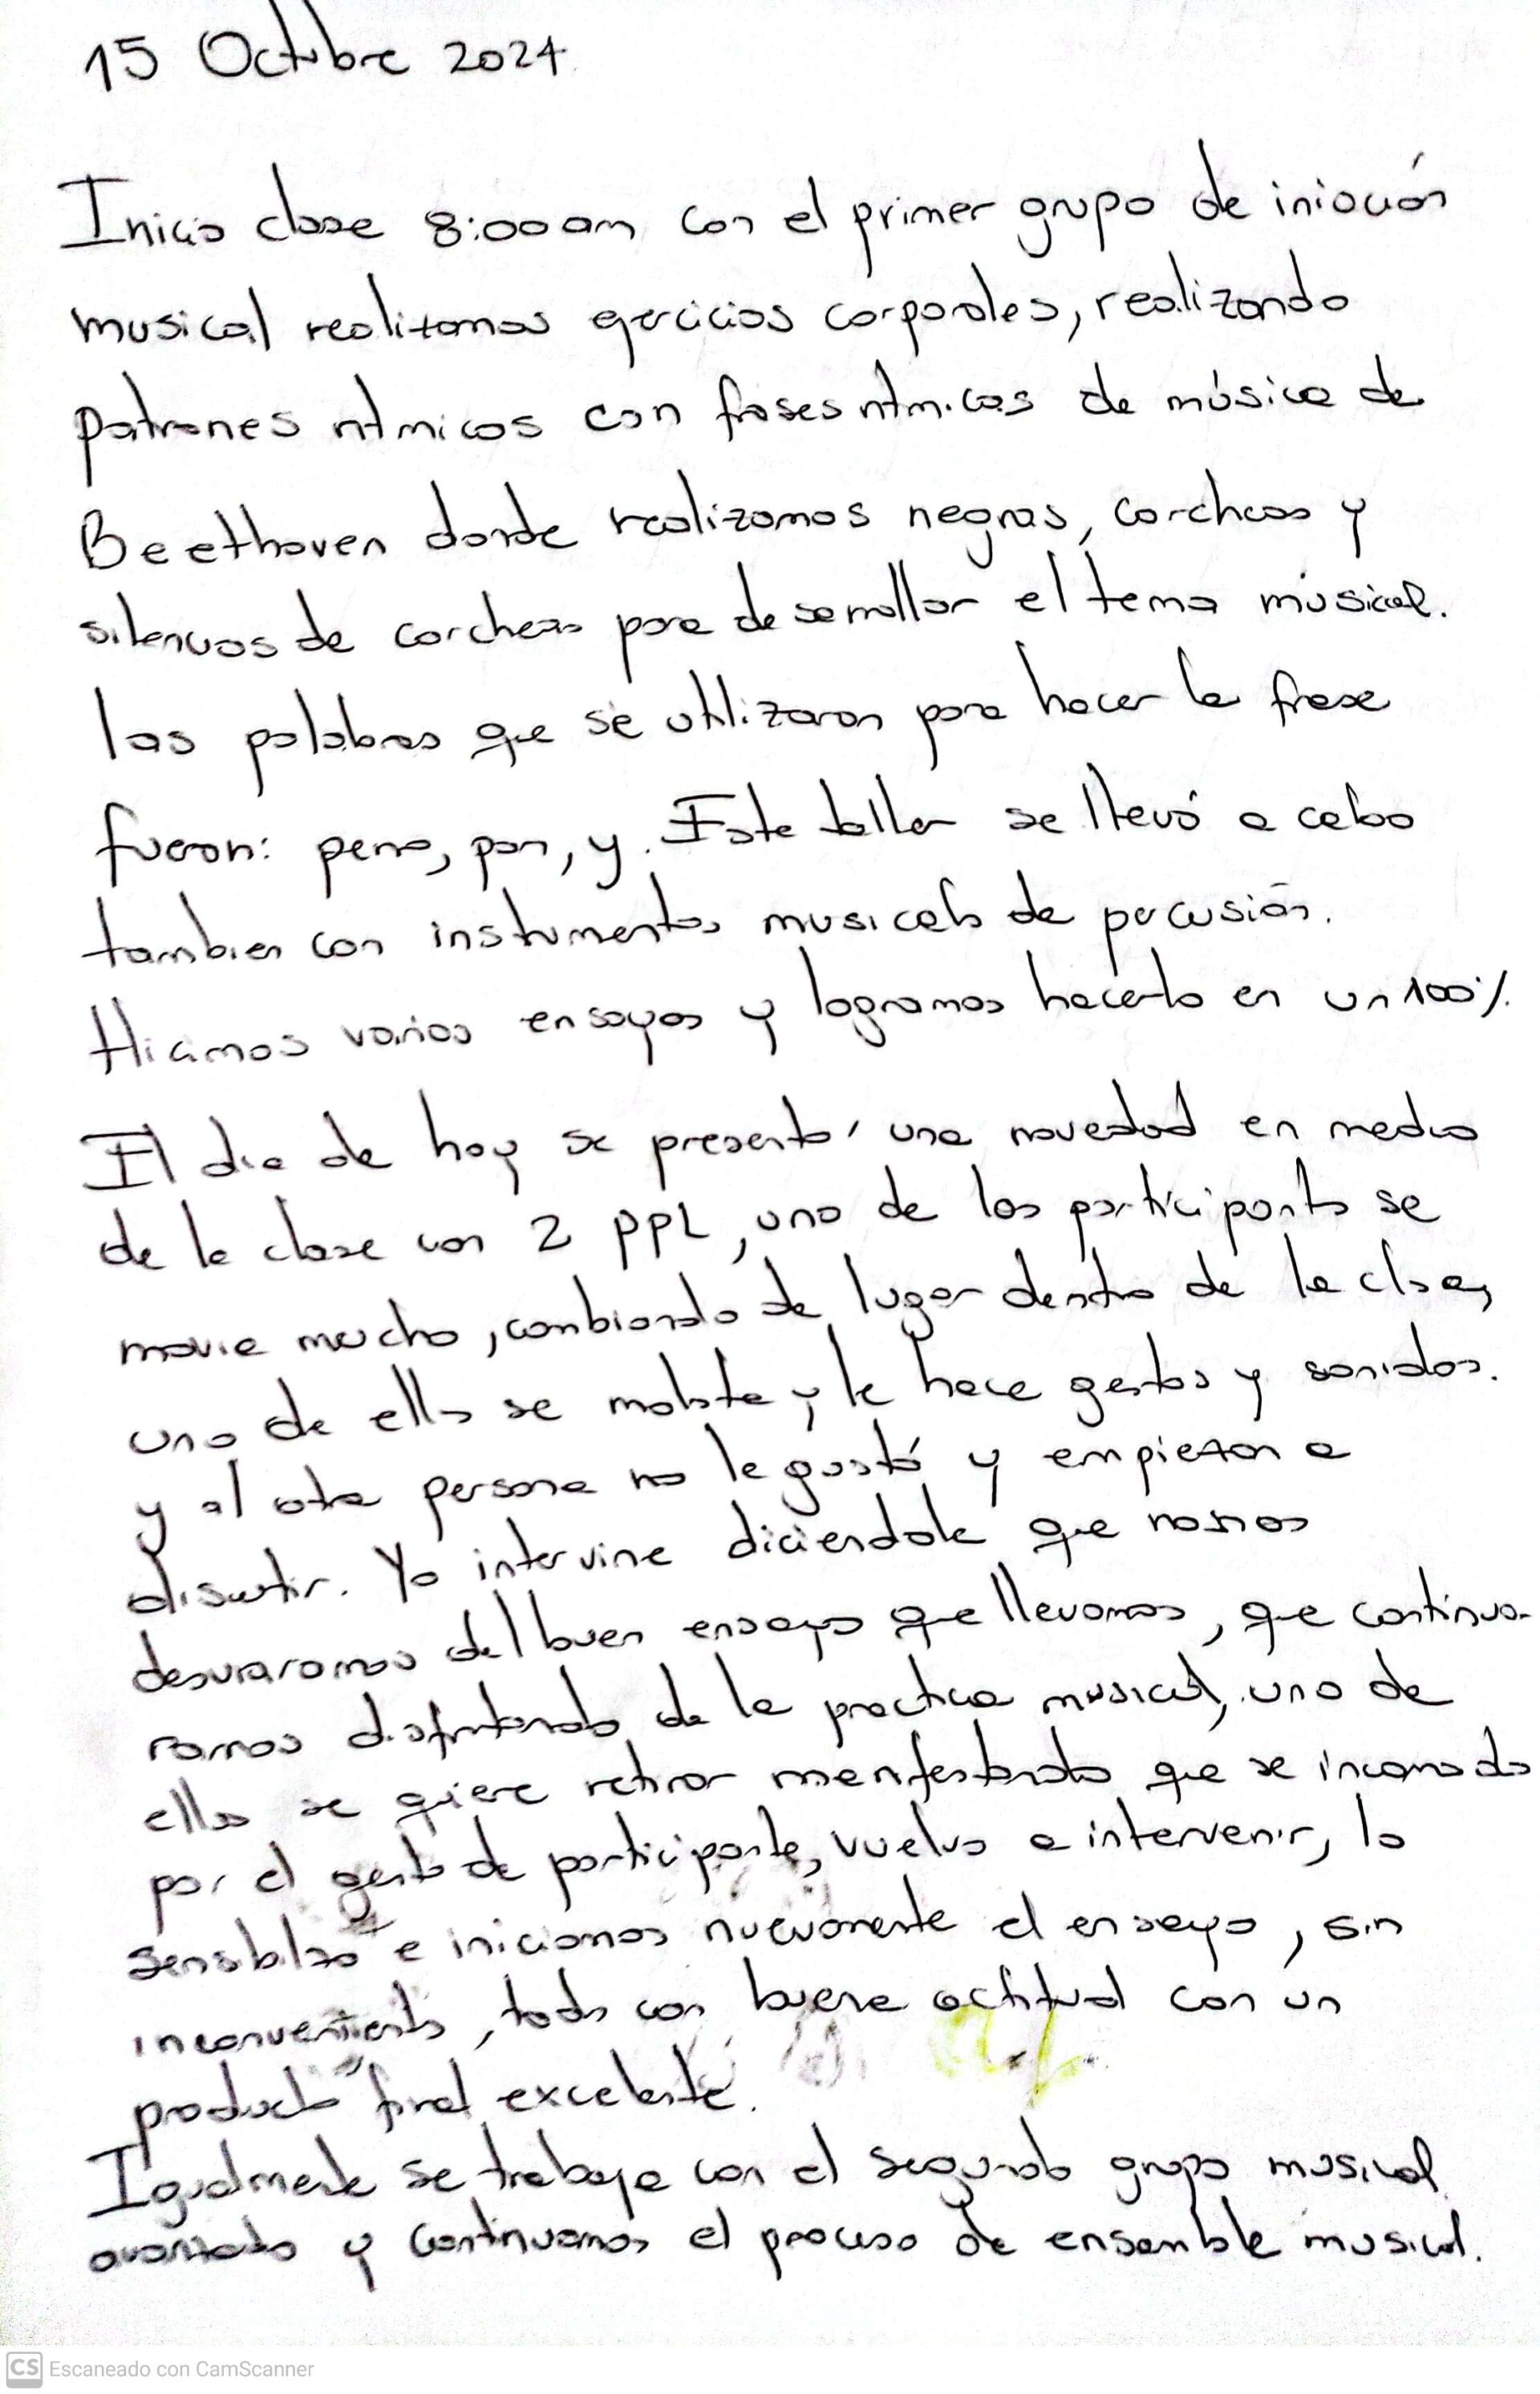 15 Octubre 2024
Inicio clase 8:00 am con el primer grupo de iniación
musical realizamos ejercicios corporales, realizando
patrones ritmicos con frases ritmicas de música de
Beethoven donde realizamos negras, corcheas y
silencios de corcheas para desarrollar el tema músical.
las palabras que se utilizaron para hacer la frase
fueron: perro, pan, y. Este taller se llevó a cabo
tambien con instrumentos musicales de percusión.
Hicimos varios ensayos y logramos hacerlo en un 100%.
El dia de hoy se presentó una novedad en medio
de la clase con 2 PPL, uno de los participantes se
movia mucho, cambiando de lugar dentro de la clase,
uno de ellos se molesta y le hace gestos y sonidos.
y al otra persona no le gustó y empiezan a
discutir. Yo intervine diciendole que no nos
desviaramos del buen ensayo que llevamos, que continua-
ramos disfrutando de la practica musical, uno de
ellos se quiere retirar manifestando que se incomodo
por el gesto de participante, vuelvo a intervenir, lo
sensibilizo e iniciamos nuevamente el ensayo, sin
inconvenientes, todos con buena actitud con un
producto final excelente.
Igualmente se trabaja con el segundo grupo musical
avanzado y continuamos el proceso de ensamble musical.
CS Escaneado con CamScanner